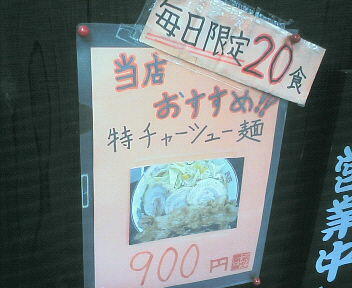 毎日限定20食
当店
おすすめ!!
特チャーシュー麺
900円
営業中